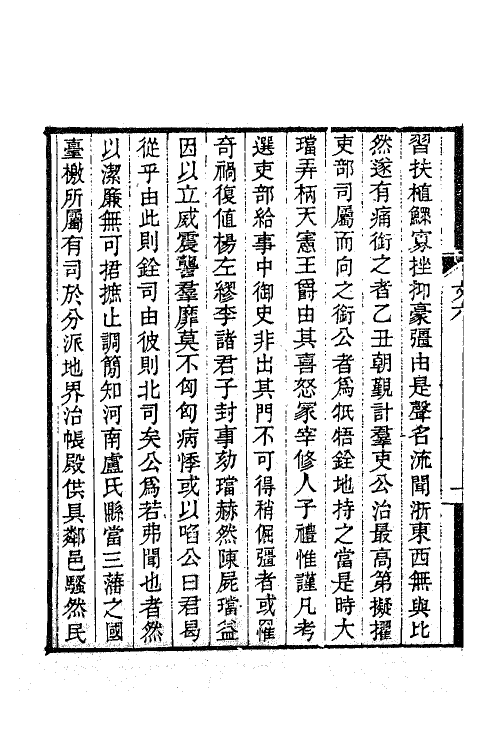 習扶植鰥寡挫抑豪彊由是聲名流聞浙東西無與比
然遂有痛銜之者乙丑朝覲計羣吏公治最高第擬擢
吏部司屬而向之銜公者為牴牾銓地持之當是時大
璫弄柄天憲王爵由其喜怒冢宰修人子禮惟謹凡考
選吏部給事中御史非出其門不可得稍倔彊者或罹
奇禍復值楊左繆李諸君子封事劾璫赫然陳屍璫益
因以立威震讋羣靡莫不匈匈病悸或以啗公曰君曷
從乎由此則銓司由彼則北司矣公為若弗聞也者然
以潔廉無可捃摭止調簡知河南盧氏縣當三藩之國
臺檄所屬有司於分派地界治帳殿供具鄰邑騷然民